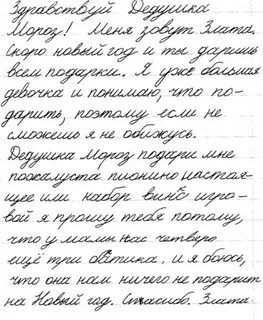 Здравствуй Дедушка
Мороз! Меня зовут Злата.
Скоро новый год и ты даришь
всем подарки. Я уже большая
девочка и понимаю, что по-
дарить, поэтому если не
сможешь я не обижусь.
Дедушка Мороз подари мне
пожалуста пионино настоя-
щее или набор винкс игро-
вой я прошу тебя потому,
что у мамы нас четверо
ещё три братика. и я боюсь,
что она нам ничего не подарит
на Новый год. Спасибо. Злата